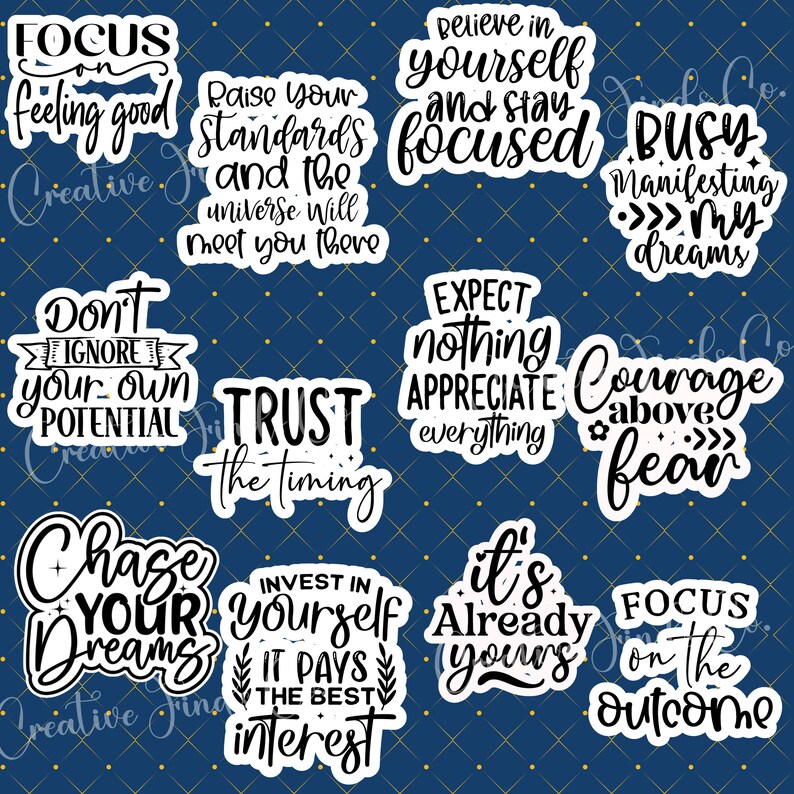 FOCUS
on
feeling good
Raise your
standards
and the
universe will
meet you there
Believe in
yourself
and stay
focused
BUSY
Manifesting
my
dreams
Don't
IGNORE
your own
POTENTIAL
TRUST
the timing
EXPECT
nothing
APPRECIATE
everything
Courage
above
fear
Chase
YOUR
Dreams
INVEST IN
yourself
IT PAYS
THE BEST
interest
it's
Already
yours
FOCUS
on the
outcome
Creative Finds Co.
Creative Finds Co.
Creative Finds Co.